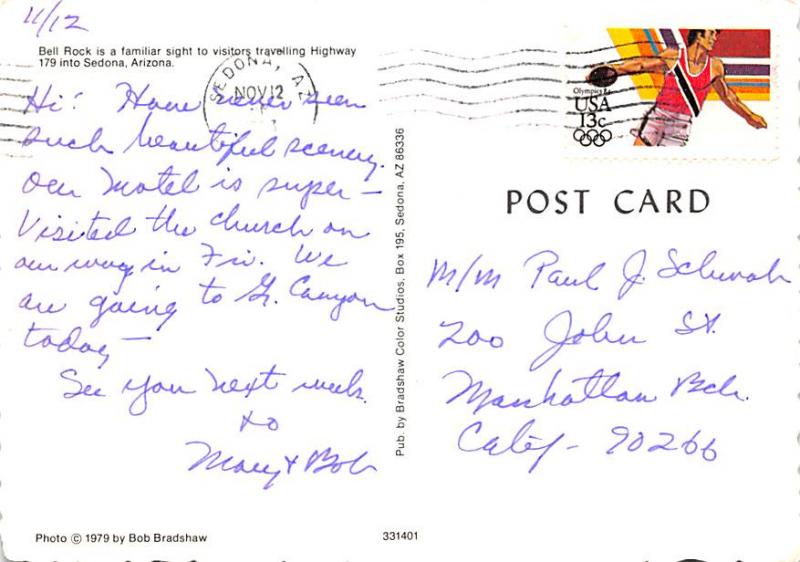 11/12
Bell Rock is a familiar sight to visitors travelling Highway
179 into Sedona, Arizona.
Hi! Have never seen
such beautiful scenery.
Our Motel is super –
Visited the church on
our way in Fri. We
are going to Gr. Canyon
today –
See you next week.
xo
Mary & Bob
Photo © 1979 by Bob Bradshaw
331401
Pub. by Bradshaw Color Studios, Box 195, Sedona, AZ 86336
SEDONA, AZ
NOV 12
Olympics 84
USA
13c
POST CARD
M/M Paul J. Schwab
200 John St.
Manhattan Bch.
Calif – 90266